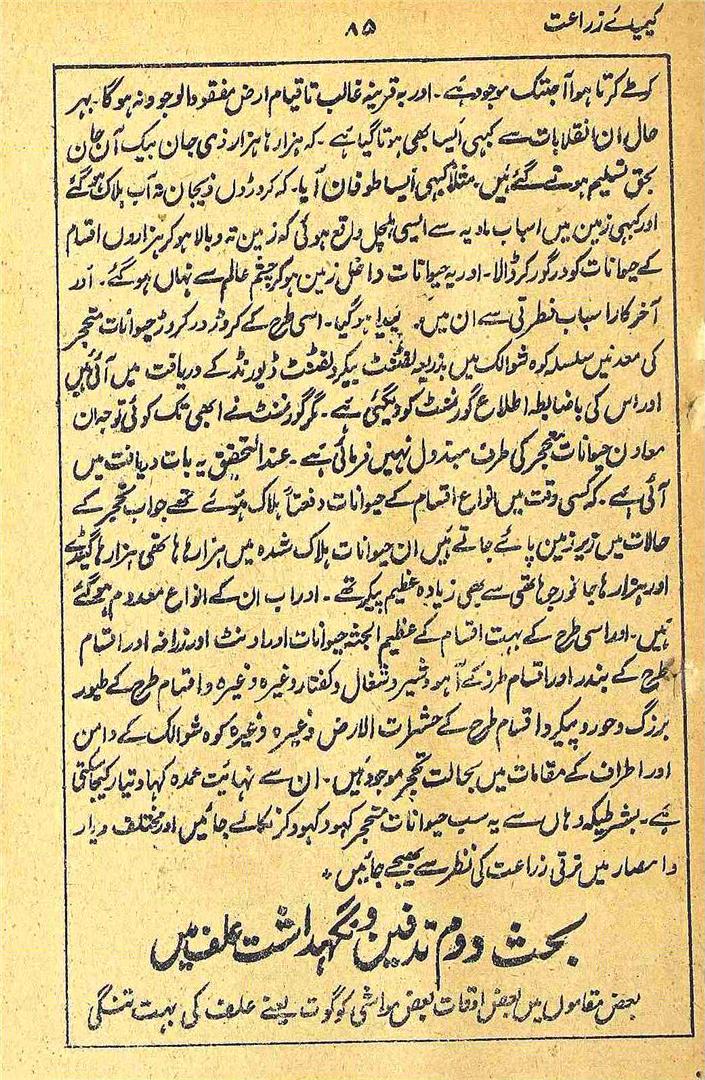 کیمیائے زراعت
۸۵
کرتا ہوا آجتک موجود ہے۔ اور بہ قرینہ غالب تا قیام ارض مفقود الوجود نہ ہوگا۔ بہر
حال ان انقلابات سے کبہی ایسا بھی ہوتا گیا ہے۔ کہ ہزارہا ہزار ذی جان بیک آن جان
بحق تسلیم ہوتے گئے ہیں۔ مثلاً کبہی ایسا طوفان آیا۔ کہ کروڑوں ذیجان تہ آب ہلاک ہو گئے
اور کبہی زمین میں اسباب مادیہ سے ایسی ہلچل واقع ہوئی کہ زمین تہ و بالا ہو کر ہزاروں اقسام
کے حیوانات کو درگور کر ڈالا۔ اور یہ حیوانات داخل زمین ہو کر چشم عالم سے نہاں ہو گئے۔ اور
آخرکار اسباب فطرتی سے ان میں پیدا ہو گیا۔ اسی طرح کے کروڑ در کروڑ حیوانات متحجر
کی معدنیں سلسلہ کوہ شوالک میں بذریعہ لفٹنٹ بیکر و لفٹنٹ ڈیورنڈ کے دریافت میں آئی ہیں
اور اس کی باضابطہ اطلاع گورنمنٹ کو دیگئی ہے۔ مگر گورنمنٹ نے ابھی تک کوئی توجہ ان
معادن حیوانات متحجر کی طرف مبذول نہیں فرمائی ہے۔ عندالتحقیق یہ بات دریافت میں
آئی ہے۔ کہ کسی وقت میں انواع اقسام کے حیوانات دفعتاً ہلاک ہوئے تھے جو اب تحجر کے
حالات میں زیر زمین پائے جاتے ہیں ان حیوانات ہلاک شدہ میں ہزارہا ہاتھی ہزارہا گینڈے
اور ہزارہا جانور جو ہاتھی سے بھی زیادہ عظیم پیکر تھے۔ اور اب ان کے انواع معدوم ہو گئے
ہیں۔ اور اسی طرح کے بہت اقسام کے عظیم الجثہ حیوانات اور اونٹ اور زرافہ اور اقسام
طرح کے بندر اور اقسام طرز کے آہو و شیر و شغال و کفتار وغیرہ وغیرہ و اقسام طرح کے طیور
بزرگ و خورد پیکر و اقسام طرح کے حشرات الارض وغیرہ وغیرہ کوہ شوالک کے دامن
اور اطراف کے مقامات میں بحالت تحجر موجود ہیں۔ ان سے نہایت عمدہ کہاد تیار کیجا سکتی
ہے۔ بشرطیکہ وہاں سے یہ سب حیوانات متحجر کہود کہود کر نکالے جائیں اور مختلف دیار
و امصار میں ترقی زراعت کی نظر سے بھیجے جائیں۔
بحث دوم تدفین و نگہداشت علف میں
بعض مقاموں میں بعض اوقات بعض مواشی کو گوت یعنے علف کی بہت تنگی